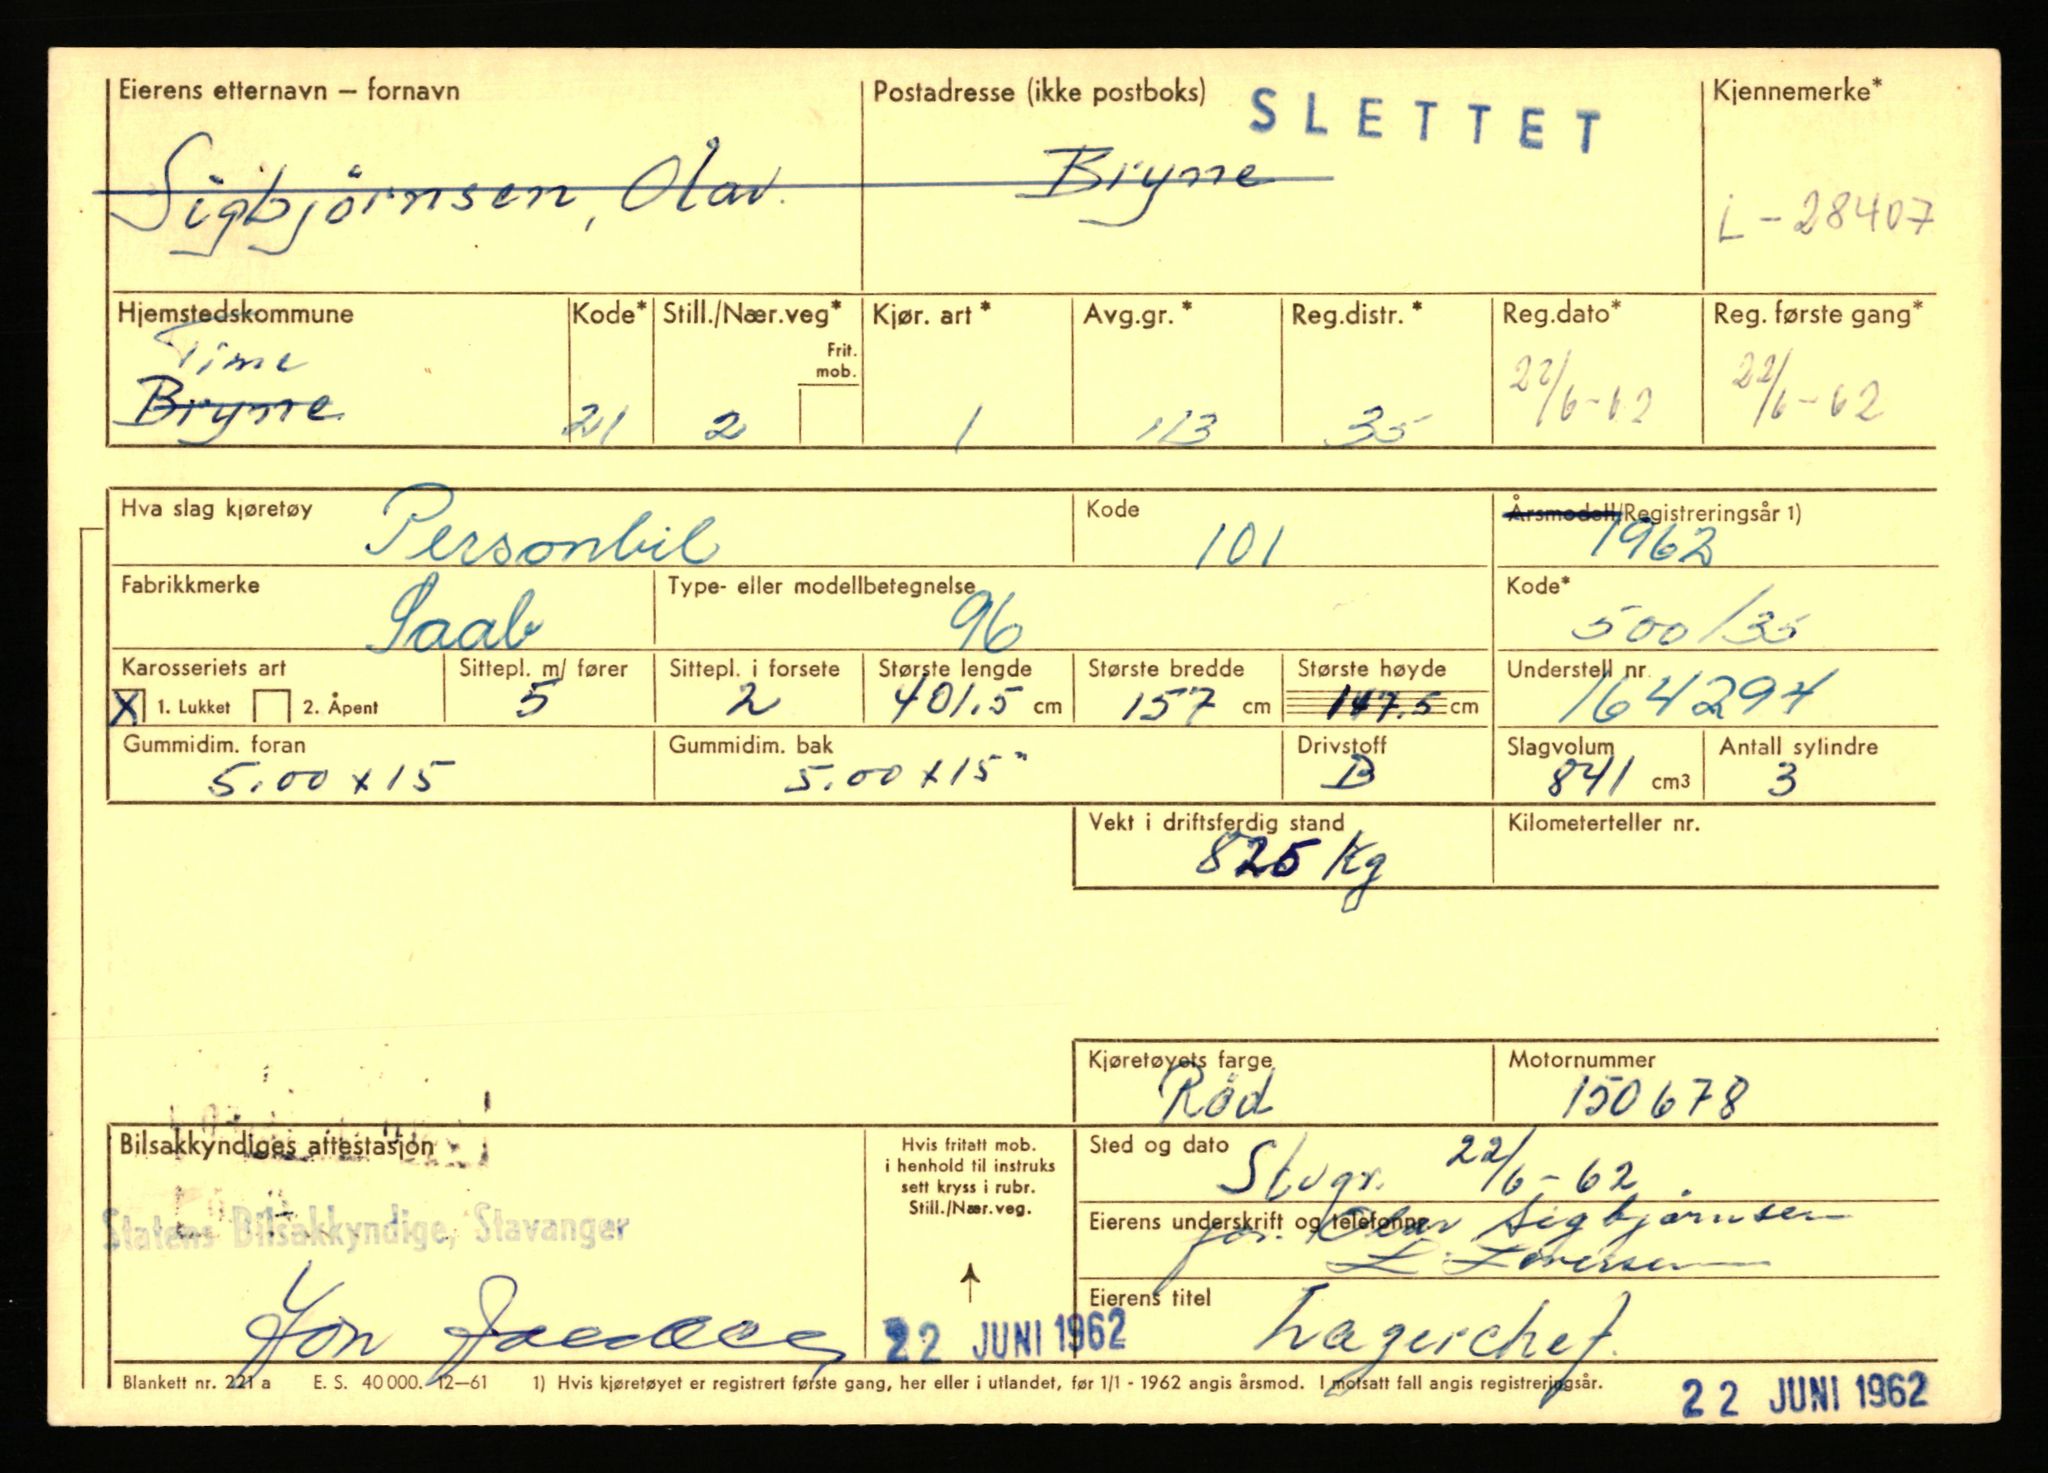 Eierens etternavn – fornavn
Postadresse (ikke postboks)
SLETTET
Kjennemerke*
Sigbjörnsen, Olav.
Bryne
L-28407
Hjemstedskommune
Kode*
Still./Nær.veg*
Frit. mob.
Kjør. art*
Avg.gr.*
Reg.distr.*
Reg.dato*
Reg. første gang*
Time
Bryne
21
2
1
113
35
22/6-62
22/6-62
Hva slag kjøretøy
Personbil
Kode
101
Årsmodell/Registreringsår 1)
1962
Fabrikkmerke
Saab
Type- eller modellbetegnelse
96
Kode*
500/35
Karosseriets art
X 1. Lukket
2. Åpent
Sittepl. m/ fører
5
Sittepl. i forsete
2
Største lengde
401.5 cm
Største bredde
157 cm
Største høyde
147.5 cm
Understell nr.
164294
Gummidim. foran
5.00 x 15
Gummidim. bak
5.00 x 15"
Drivstoff
B
Slagvolum
841 cm3
Antall sylindre
3
Vekt i driftsferdig stand
825 Kg
Kilometerteller nr.
Kjøretøyets farge
Rød
Motornummer
150678
Bilsakkyndiges attestasjon
Statens Bilsakkyndige, Stavanger
Jon
Hvis fritatt mob.
i henhold til instruks
sett kryss i rubr.
Still./Nær.veg.
22 JUNI 1962
Sted og dato
Stvgr. 22/6-62
Eierens underskrift og telefonnr.
for. Olav Sigbjørnsen
Eierens titel
Lagerchef.
Blankett nr. 221 a E. S. 40 000. 12–61 1) Hvis kjøretøyet er registrert første gang, her eller i utlandet, før 1/1 - 1962 angis årsmod. I motsatt fall angis registreringsår.
22 JUNI 1962